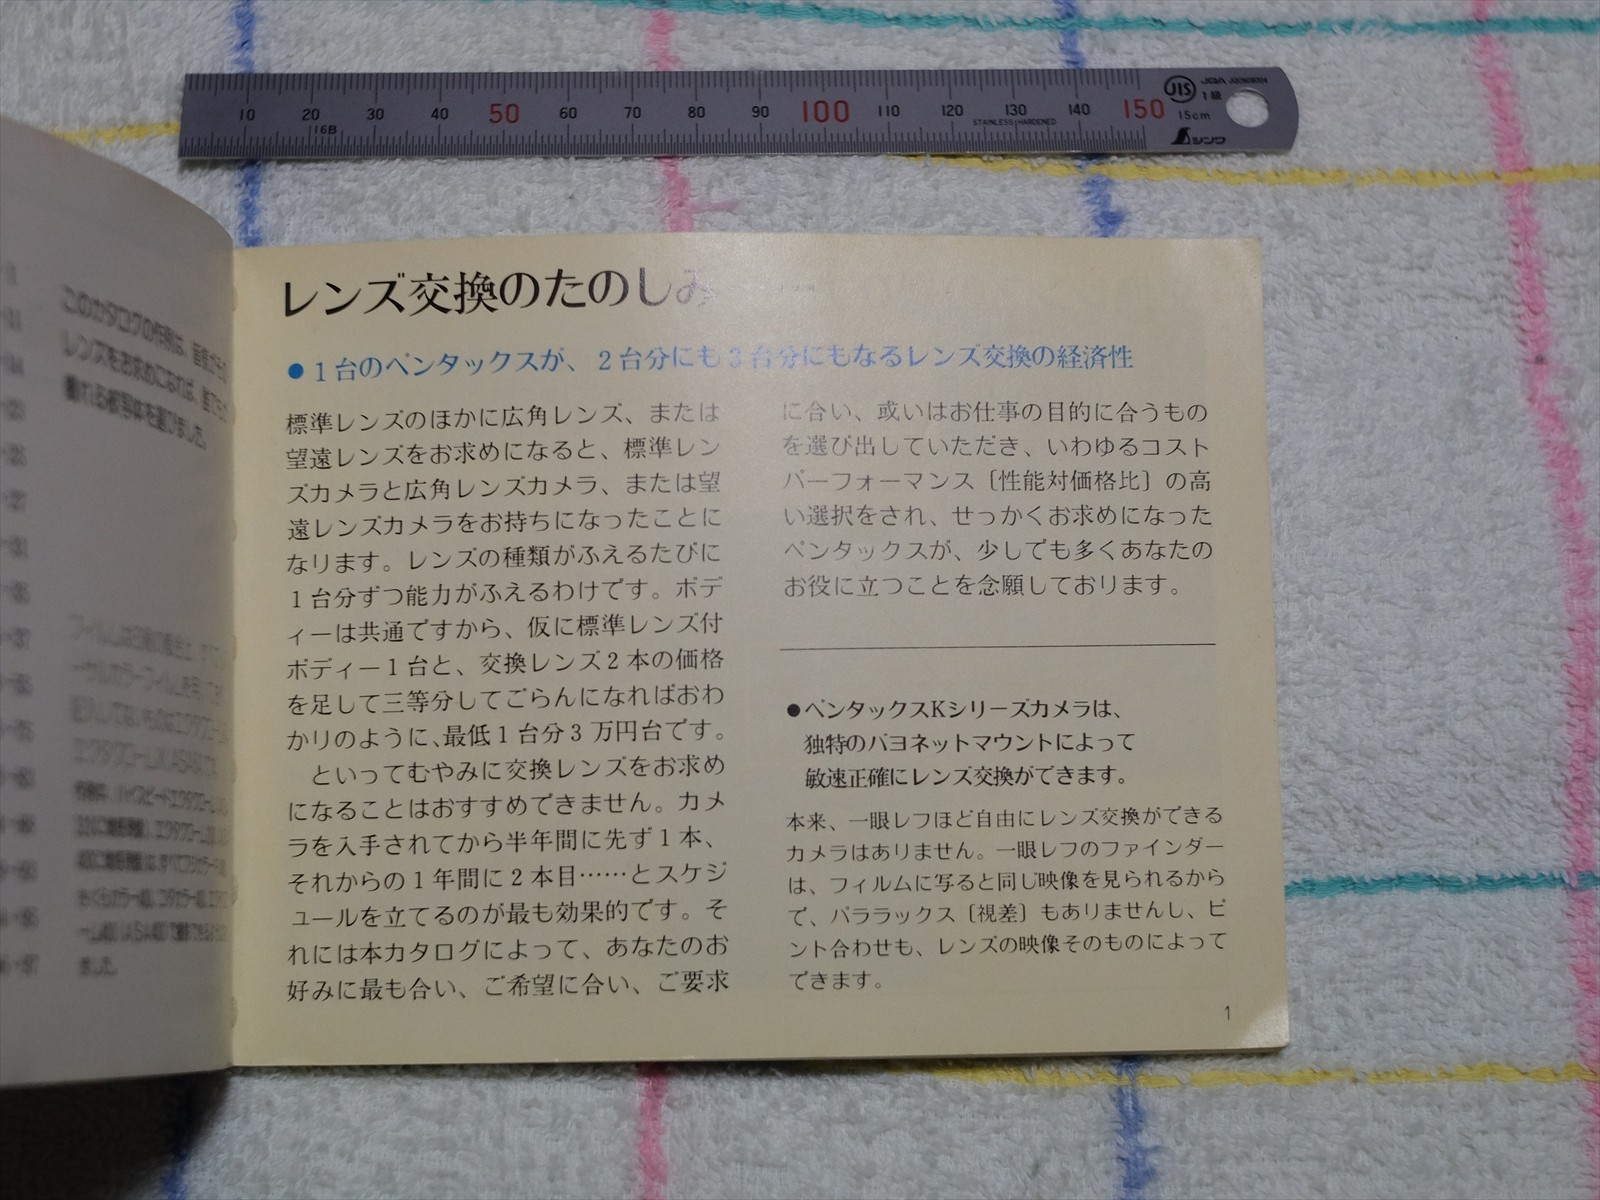 10 20 30 40 50 60 70 80 90 100 110 120 130 140 150
16B
STAINLESS HARDENED
JIS
1級
15cm
シンワ
このカタログの作例は、
レンズをお求めになれば、誰でも
撮れる被写体を選びました。
ました。
レンズ交換のたのしみ
●1台のペンタックスが、2台分にも3台分にもなるレンズ交換の経済性
標準レンズのほかに広角レンズ、または
望遠レンズをお求めになると、標準レン
ズカメラと広角レンズカメラ、または望
遠レンズカメラをお持ちになったことに
なります。レンズの種類がふえるたびに
1台分ずつ能力がふえるわけです。ボデ
ィーは共通ですから、仮に標準レンズ付
ボディー1台と、交換レンズ2本の価格
を足して三等分してごらんになればおわ
かりのように、最低1台分3万円台です。
といってむやみに交換レンズをお求め
になることはおすすめできません。カメ
ラを入手されてから半年間に先ず1本、
それからの1年間に2本目……とスケジ
ュールを立てるのが最も効果的です。そ
れには本カタログによって、あなたのお
好みに最も合い、ご希望に合い、ご要求
に合い、或いはお仕事の目的に合うもの
を選び出していただき、いわゆるコスト
パーフォーマンス〔性能対価格比〕の高
い選択をされ、せっかくお求めになった
ペンタックスが、少しでも多くあなたの
お役に立つことを念願しております。
●ペンタックスKシリーズカメラは、
独特のバヨネットマウントによって
敏速正確にレンズ交換ができます。
本来、一眼レフほど自由にレンズ交換ができる
カメラはありません。一眼レフのファインダー
は、フィルムに写ると同じ映像を見られるから
で、パララックス〔視差〕もありませんし、ピ
ント合わせも、レンズの映像そのものによって
できます。
1